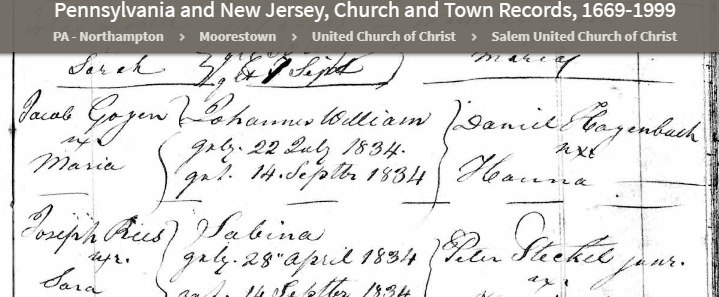 Pennsylvania and New Jersey, Church and Town Records, 1669-1999
PA - Northampton > Moorestown > United Church of Christ > Salem United Church of Christ
Sarah Sept Maria
Jacob Gogen Johannes William Daniel Hagenbuch
uxr geb. 22 July 1834. uxr
Maria get. 14. Septbr 1834 Hanna
Joseph Ries Sabina
uxr. geb. 28 April 1834 Peter Steckel junr.
Sara get. 14 Septbr 1834 uxr.